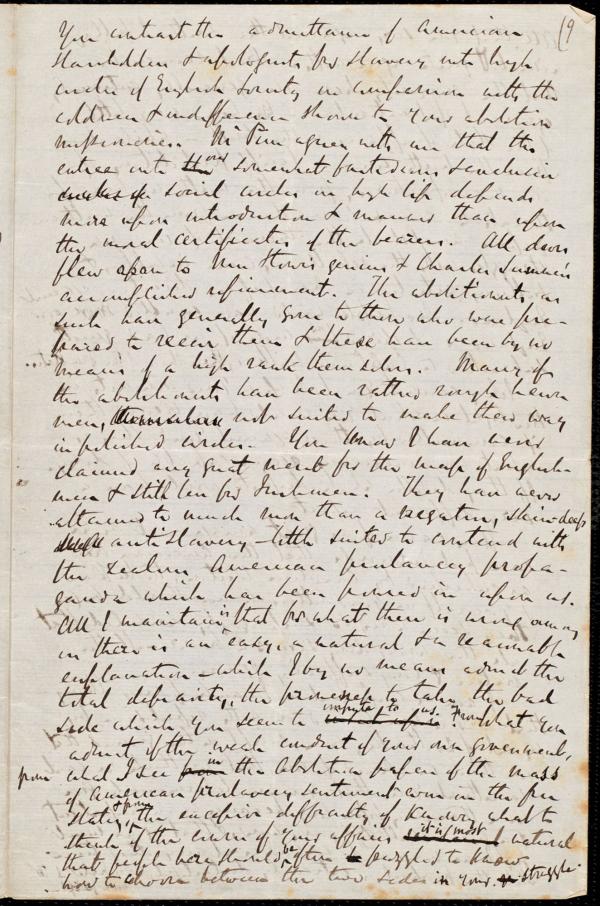 19
You contrast the admittance of American
slaveholders & apologists for slavery into high
circles of English Society in comparison with the
coldness & indifference shown to your abolition
missionaries. Mr Pim agrees with me that the
entrée into our somewhat fastidious & exclusive
social circles in high life depends
more upon introduction & manners than upon
the moral certificates of the bearers. All doors
flew open to Mrs Stowe's genius & Charles Sumner's
accomplished refinement. The abolitionists as
such have generally gone to those who were pre-
pared to receive them & these have been by no
means of a high rank themselves. Many of
the abolitionists have been rather rough hewn
men, not suited to make their way
in polished circles. You know I have never
claimed any great merit for the mass of English-
men & still less for Irishmen. They have never
attained to much more than a negative, skin-deep
anti slavery - little suited to contend with
the zealous American proslavery propa-
ganda which has been poured in upon us.
All I maintain is that for what there is wrong among
us there is an easy, a natural & a reasonable
explanation - which I by no means admit the
total depravity, the proneness to take the bad
side which you seem to impute to us. From what you
admit of the weak conduct of your own government,
from what I see in the Abolition papers of the mass
of American proslavery sentiment even in the free
states, & from the excessive difficulty of knowing what to
think of the course of your affairs it is most natural
that people here should be often puzzled to know
how to choose between the two sides in your struggle.